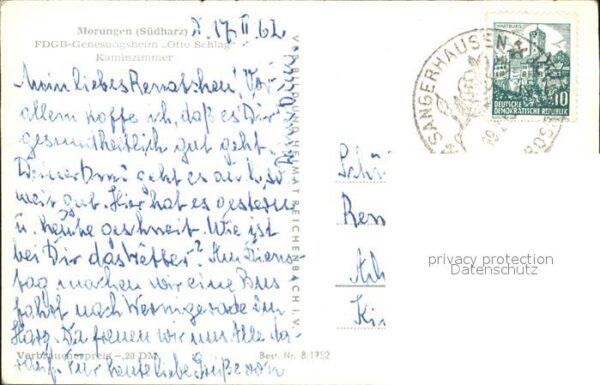 Morungen (Südharz)
FDGB-Genesungsheim „Otto Schlag"
Kaminzimmer
17. II 62
Mein liebes Renatchen! Vor
allem hoffe ich, daß es Dir
gesundheitlich gut geht.
Deiner Omi geht es auch so
weit gut. Hier hat es gestern
u. heute geschneit. Wie ist
bei Dir das Wetter? Am Diens
tag machen wir eine Bus
fahrt nach Wernigerode im
Harz. Da freuen wir uns Alle da-
rauf. Für heute liebe Grüße von
Verbraucherpreis -,20 DM
Best. Nr. 8/1752
VERBILDUNG HEIMAT REICHENBACH I. V.
SANGERHAUSEN
WARTBURG
10
DEUTSCHE
DEMOKRATISCHE REPUBLIK
Schü
Ren
Ki
privacy protection
Datenschutz